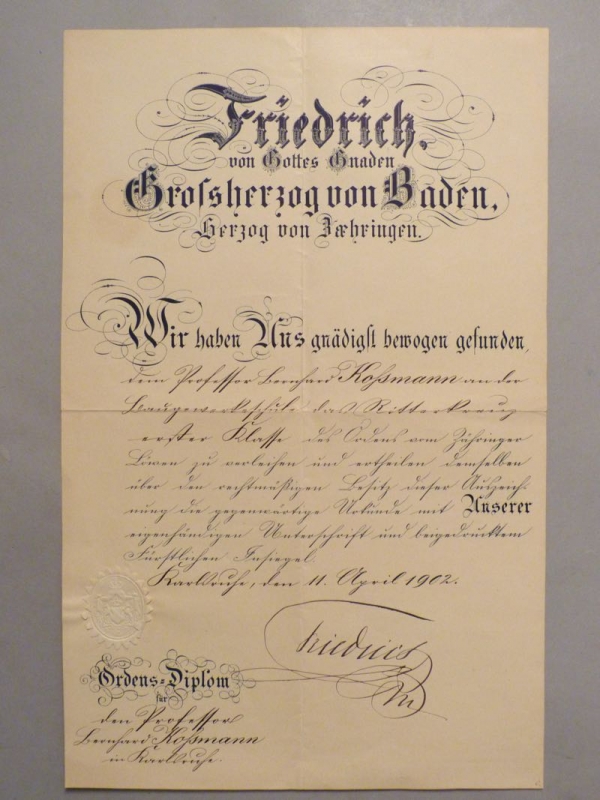 Friedrich,
von Gottes Gnaden
Grossherzog von Baden,
Herzog von Zæhringen.
Wir haben Uns gnädigst bewogen gefunden,
dem Professor Bernhard Koßmann an der
Baugewerkeschule das Ritterkreuz
erster Klasse des Ordens vom Zähringer
Löwen zu verleihen und ertheilen demselben
über den rechtmäßigen Besitz dieser Auszeich-
nung die gegenwärtige Urkunde mit Unserer
eigenhändigen Unterschrift und beigedrucktem
Fürstlichen Insiegel
Karlsruhe, den 11. April 1902.
Friedrich
Ordens-Diplom
für
den Professor
Bernhard Koßmann
in Karlsruhe.